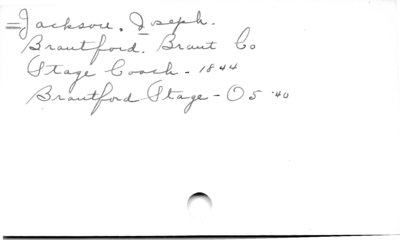 =Jackson. Joseph.
Brantford. Brant Co
Stage Coach - 1844
Brantford Stage - O5 '40